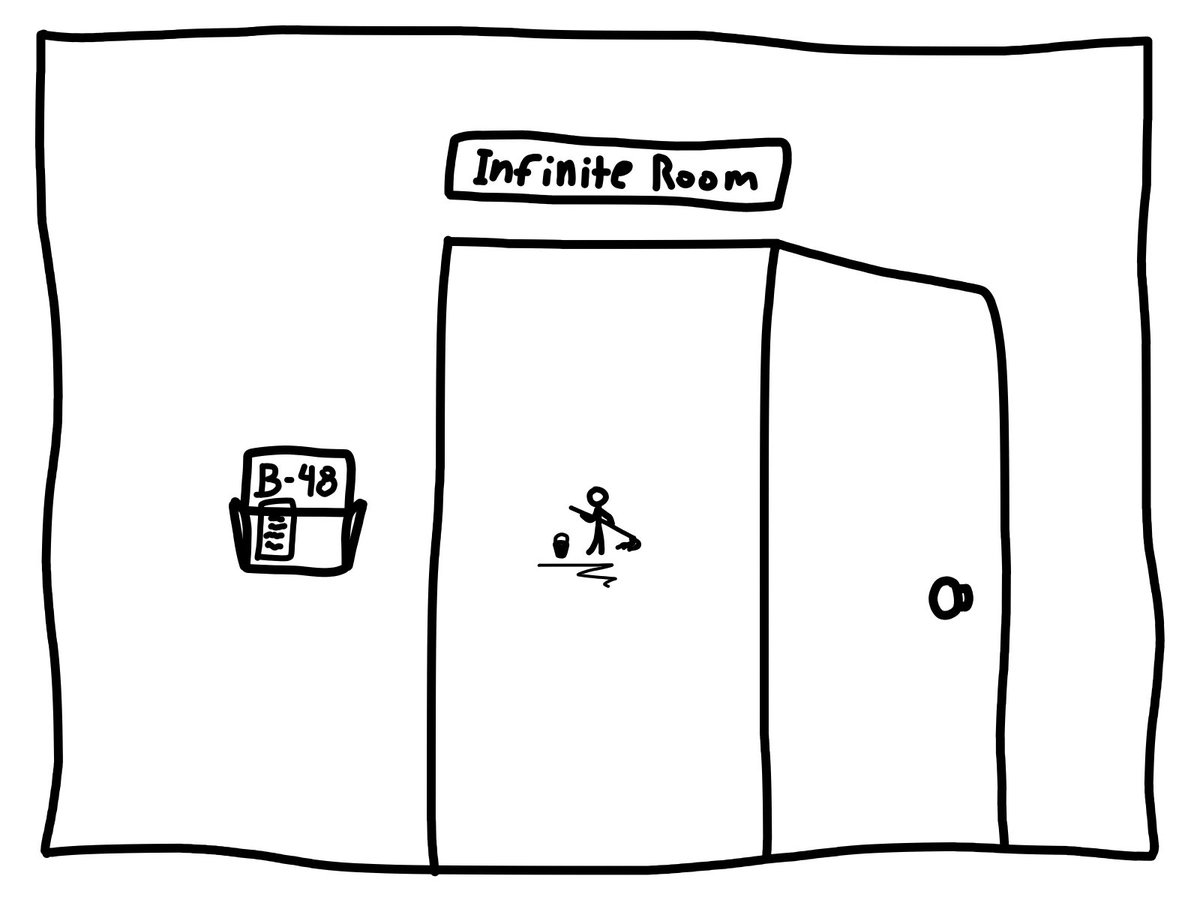 Infinite Room
B-48